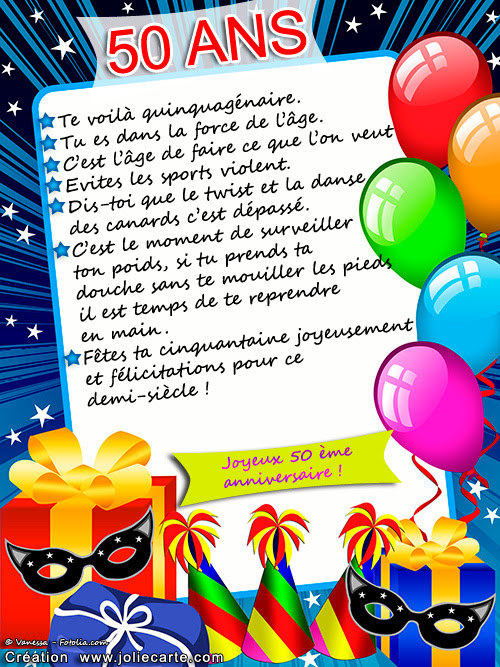 50 ANS
Te voilà quinquagénaire.
Tu es dans la force de l'âge.
C'est l'âge de faire ce que l'on veut
Evites les sports violent.
Dis-toi que le twist et la danse
des canards c'est dépassé.
C'est le moment de surveiller
ton poids, si tu prends ta
douche sans te mouiller les pieds
il est temps de te reprendre
en main.
Fêtes ta cinquantaine joyeusement
et félicitations pour ce
demi-siècle !
Joyeux 50 ème
anniversaire !
© Vanessa - Fotolia.com
Création www.joliecarte.com